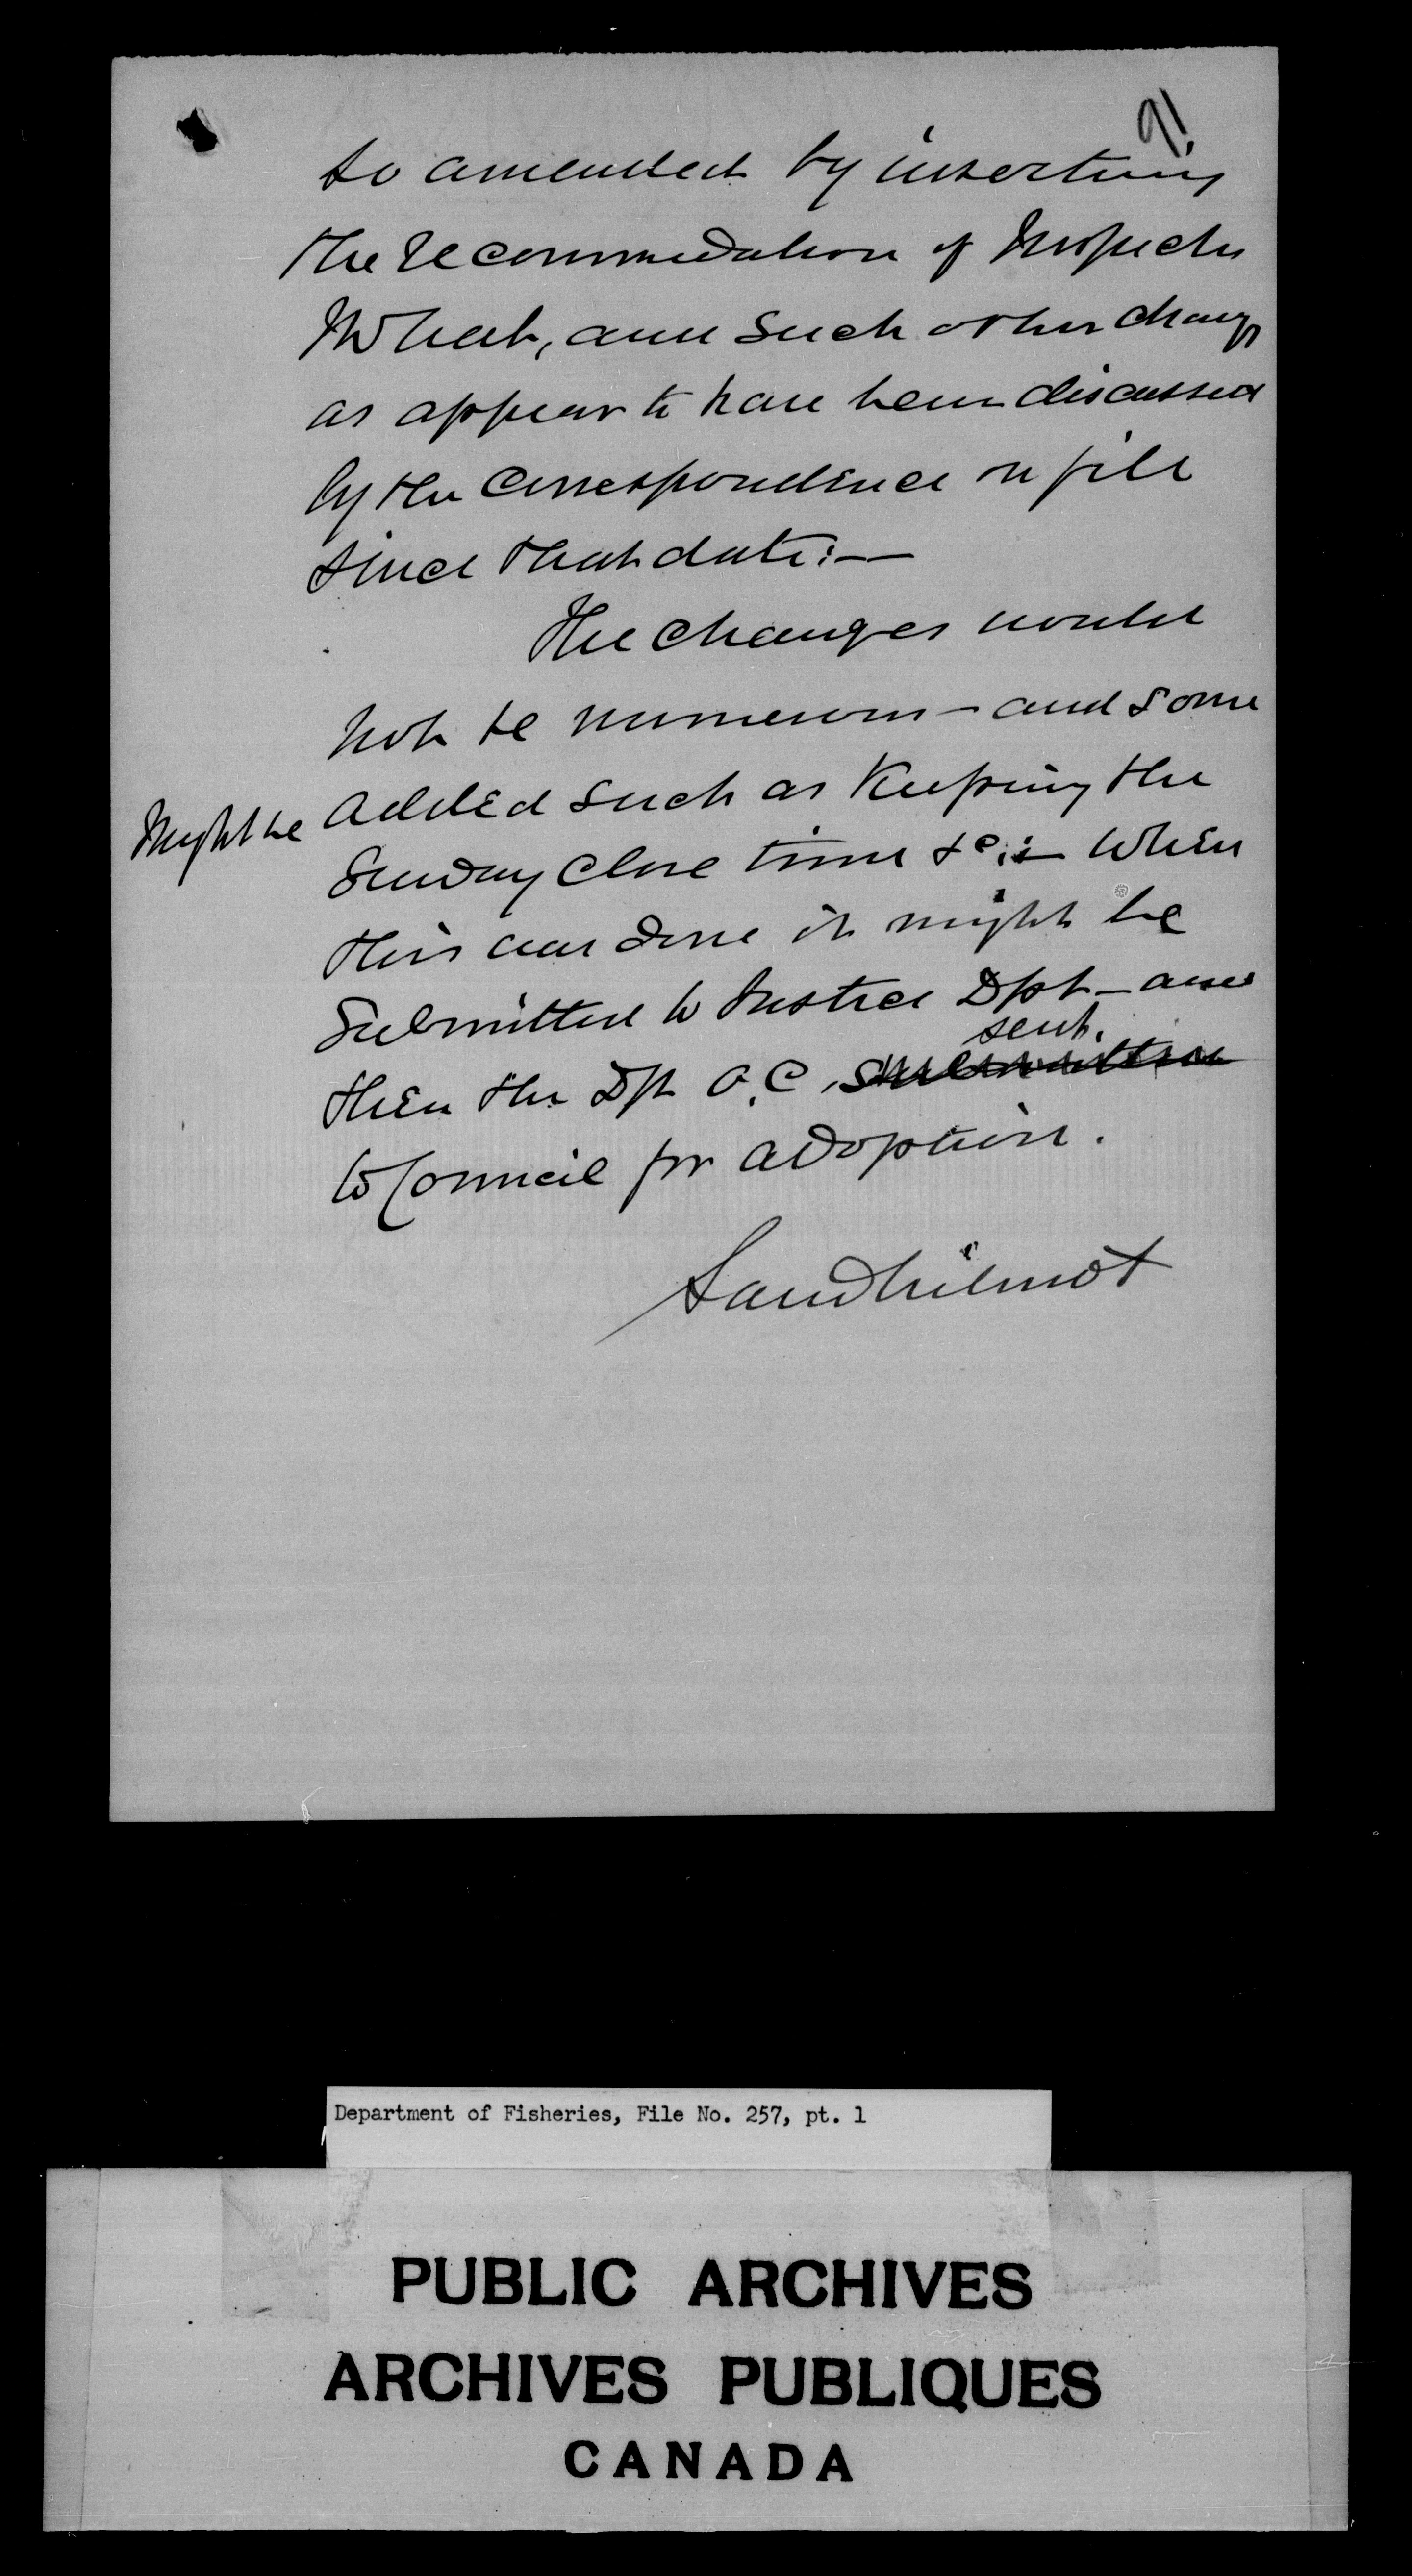 91
so amended by inserting
the recommendation of Inspector
Mowat, and such other changes
as appear to have been discussed
by the correspondence on file
since that date:—
The changes would
not be numerous — and some
Might be added such as Keeping the
Sunday close time &c:— When
this was done it might be
Submitted to Justice Dpt — and
then the Dft O.C. submitted sent
to Council for adoption.
Sam Wilmot
Department of Fisheries, File No. 257, pt. 1
PUBLIC ARCHIVES
ARCHIVES PUBLIQUES
CANADA